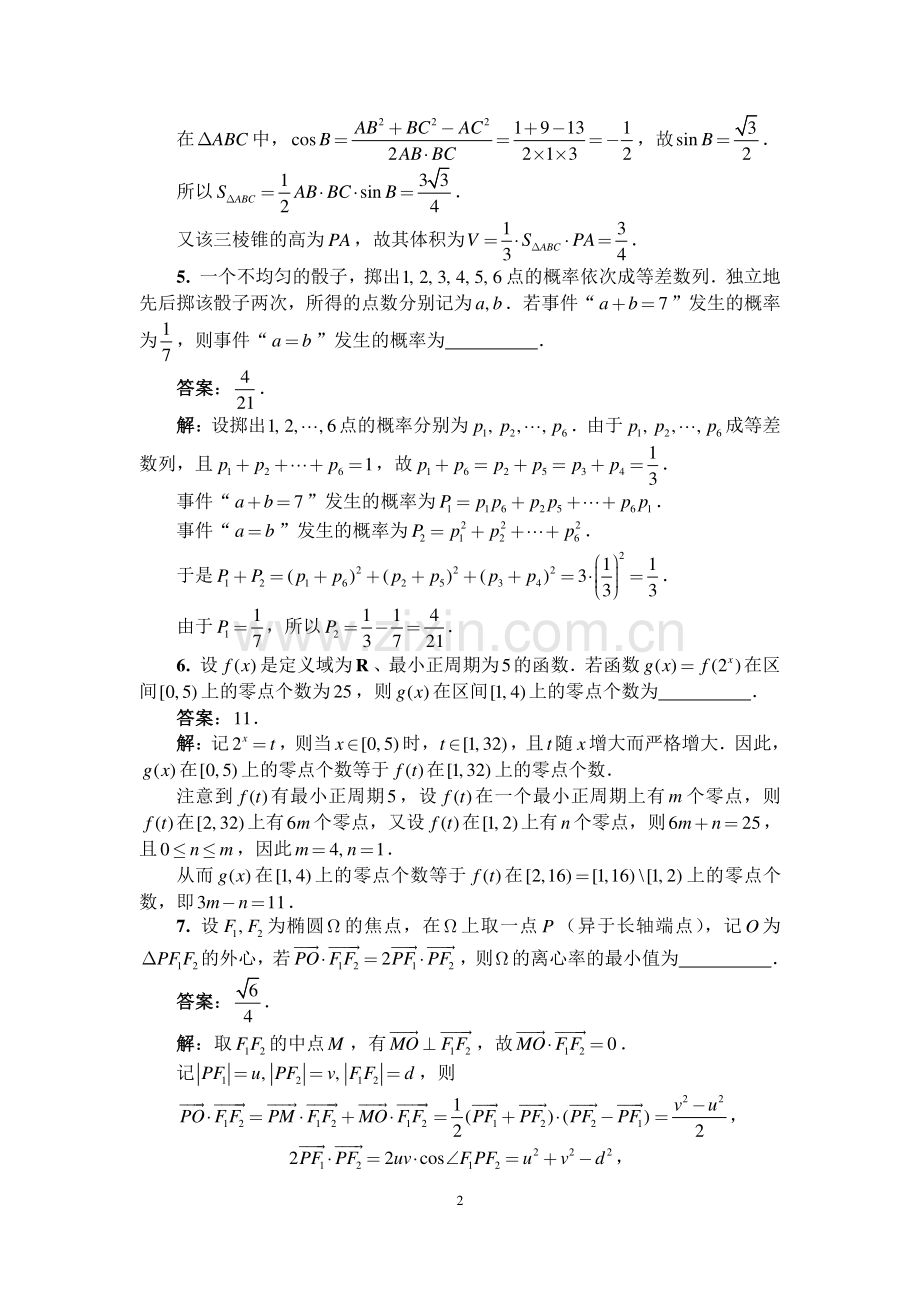 在ΔABC中，cos B = (AB² + BC² − AC²)/(2AB·BC) = (1+9−13)/(2×1×3) = −1/2，故sin B = √3/2．
所以 S_{ΔABC} = 1/2 AB·BC·sin B = 3√3/4．
又该三棱锥的高为PA，故其体积为V = 1/3·S_{ΔABC}·PA = 3/4．
5. 一个不均匀的骰子，掷出1, 2, 3, 4, 5, 6点的概率依次成等差数列．独立地
先后掷该骰子两次，所得的点数分别记为a, b．若事件“a+b=7”发生的概率
为1/7，则事件“a=b”发生的概率为__________．
答案：4/21．
解：设掷出1, 2, ⋯, 6点的概率分别为p₁, p₂, ⋯, p₆．由于p₁, p₂, ⋯, p₆成等差
数列，且p₁+p₂+⋯+p₆=1，故p₁+p₆=p₂+p₅=p₃+p₄=1/3．
事件“a+b=7”发生的概率为P₁=p₁p₆+p₂p₅+⋯+p₆p₁．
事件“a=b”发生的概率为P₂=p₁²+p₂²+⋯+p₆²．
于是P₁+P₂=(p₁+p₆)²+(p₂+p₅)²+(p₃+p₄)²=3·(1/3)²=1/3．
由于P₁=1/7，所以P₂=1/3−1/7=4/21．
www.zixin.com.cn
6. 设f(x)是定义域为R、最小正周期为5的函数．若函数g(x)=f(2ˣ)在区
间[0, 5)上的零点个数为25，则g(x)在区间[1, 4)上的零点个数为__________．
答案：11．
解：记2ˣ=t，则当x∈[0, 5)时，t∈[1, 32)，且t随x增大而严格增大．因此，
g(x)在[0, 5)上的零点个数等于f(t)在[1, 32)上的零点个数．
注意到f(t)有最小正周期5，设f(t)在一个最小正周期上有m个零点，则
f(t)在[2, 32)上有6m个零点，又设f(t)在[1, 2)上有n个零点，则6m+n=25，
且0≤n≤m，因此m=4, n=1．
从而g(x)在[1, 4)上的零点个数等于f(t)在[2, 16)=[1, 16)\[1, 2)上的零点个
数，即3m−n=11．
7. 设F₁, F₂为椭圆Ω的焦点，在Ω上取一点P（异于长轴端点），记O为
ΔPF₁F₂的外心，若→PO·→F₁F₂=2→PF₁·→PF₂，则Ω的离心率的最小值为__________．
答案：√6/4．
解：取F₁F₂的中点M，有→MO⊥→F₁F₂，故→MO·→F₁F₂=0．
记|PF₁|=u, |PF₂|=v, |F₁F₂|=d，则
→PO·→F₁F₂=→PM·→F₁F₂+→MO·→F₁F₂=1/2(→PF₁+→PF₂)·(→PF₂−→PF₁)=(v²−u²)/2，
2→PF₁·→PF₂=2uv·cos∠F₁PF₂=u²+v²−d²，
2